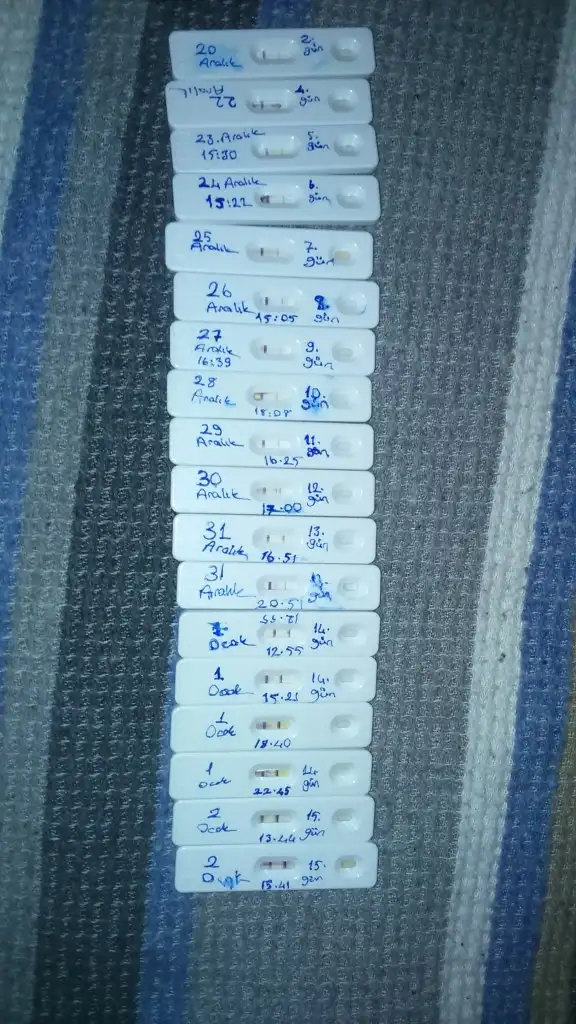 20
Aralık
2.
gün
22
Aralık
4.
gün
23.Aralık
15:30
5.
gün
24 Aralık
15:22
6.
gün
25
Aralık
7.
gün
26
Aralık
15:05
8.
gün
27
Aralık
16:39
9.
gün
28
Aralık
18:08
10.
gün
29
Aralık
16.25
11.
gün
30
Aralık
17.00
12.
gün
31
Aralık
16.51
13.
gün
31
Aralık
20.51
1
Ocak
12.55
14.
gün
1
Ocak
15.21
14.
gün
1
Ocak
18.40
1
Ocak
22.45
14.
gün
2
Ocak
13.44
15.
gün
2
Ocak
15.41
15.
gün